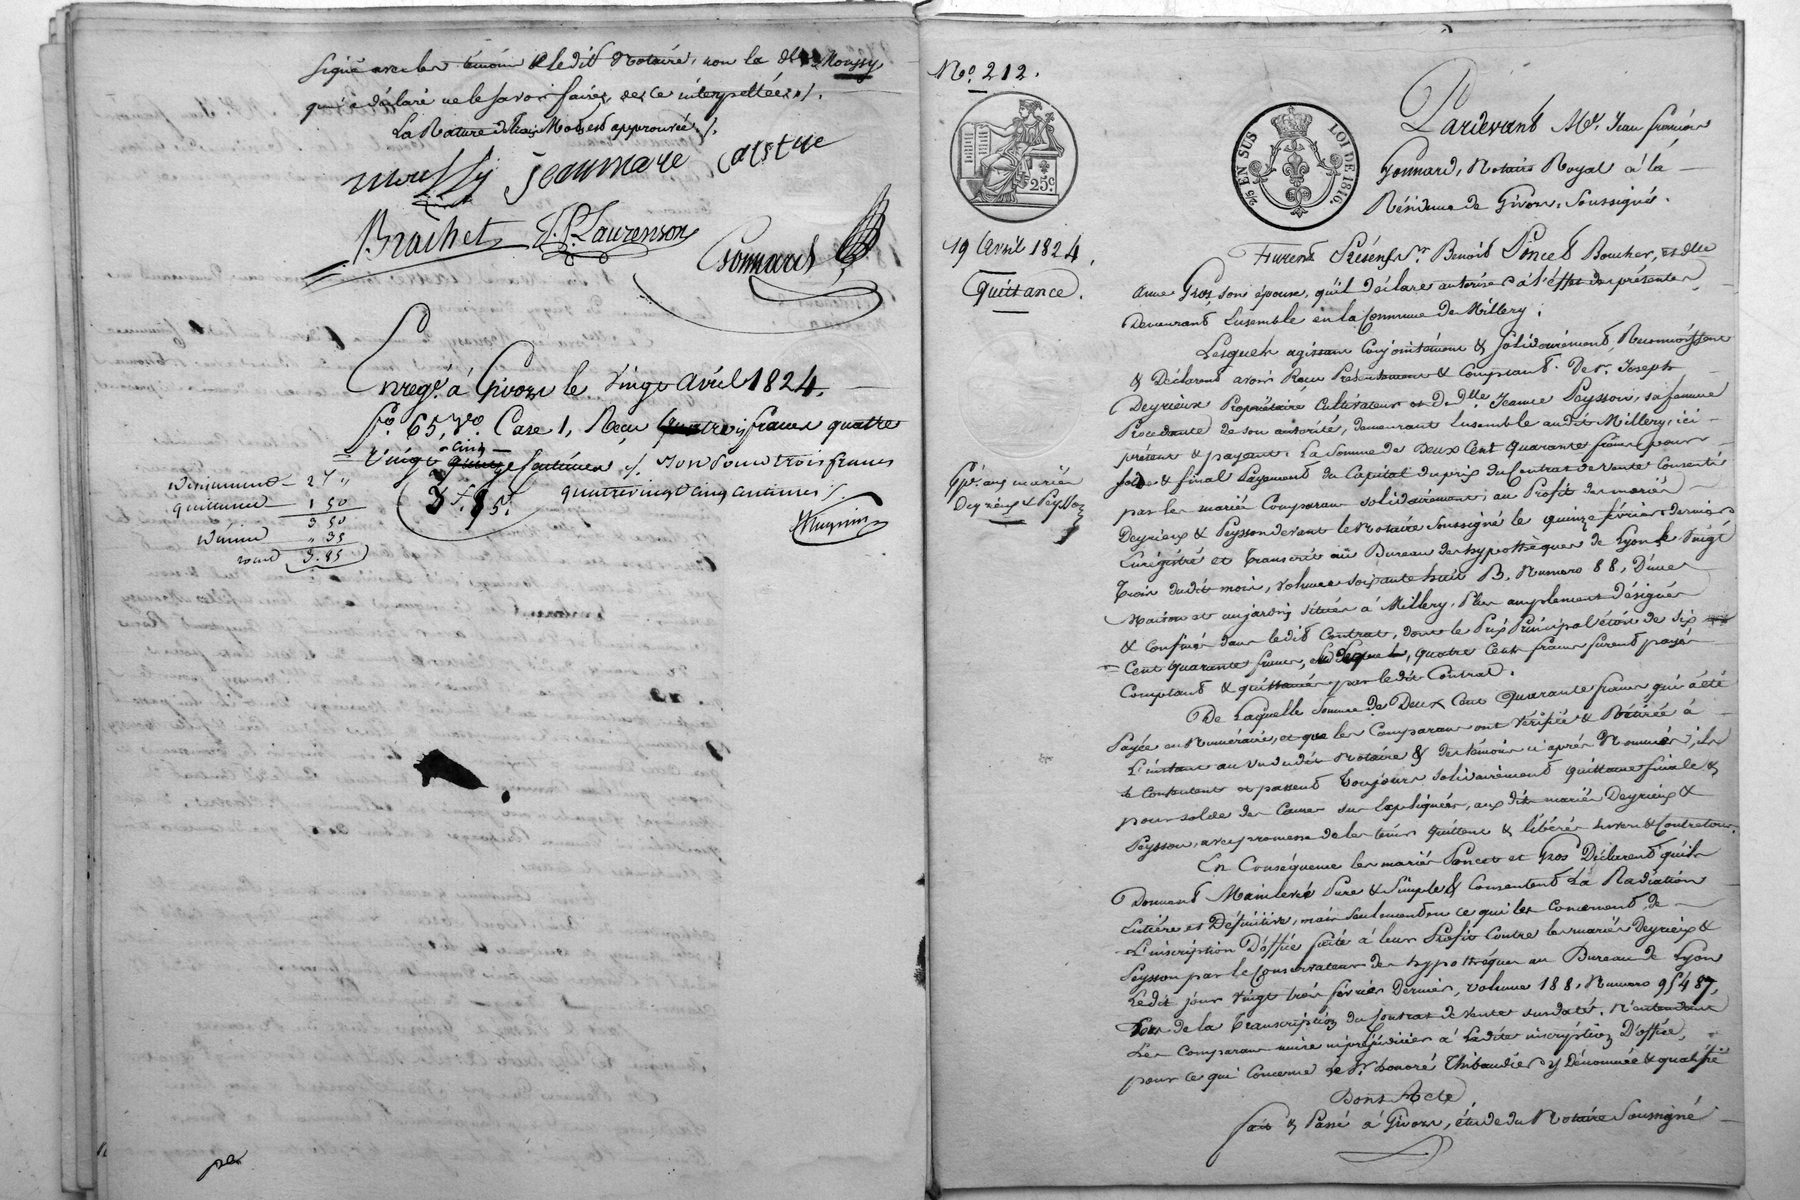 signé avec les témoins & ledit Notaire, non la dlle Moussy
qui a déclaré ne le savoir faire, de ce interpellée ./.
La Rature de trois Mots est approuvée ./.
mousssy jeanmare
Brachet J. P. Laurenson
Gonnard
Enregé. à Givors le vingt avril 1824.
fo. 65, Vo. Case 1, Reçu trois francs quatre
vingt cinq centimes ./. Son pour trois francs
quatre vingt cinq centimes ./.
3 f. 85 c.
2 "
quittance 1 50
3 50
Décime " 35
3. 85
No. 212.
25c.
2/5 EN SUS
LOI DE 1816.
19 Avril 1824.
Quittance.
Gve. aux mariés
Deyrieux & Peysson
Pardevant Me. Jean François
Gonnard, Notaire Royal à la
Résidence de Givors, Soussigné.
Furent Présens Sr. Benoit Poncet Boucher, et dlle
Anne Gros, son épouse, qu'il déclare autoriser à l'effet des présentes,
Demeurant Ensemble en la Commune de Millery;
Lesquels agissant Conjointement & Solidairement, Reconnoissent
& Déclarent avoir Reçu Présentement & Comptant de Sr. Joseph
Deyrieux Propriétaire Cultivateur et de dlle Jeanne Peysson, sa femme
Procédante de son autorité, demeurant Ensemble audit Millery, ici
présent & payant. La Somme de Deux Cent Quarante francs pour
solde & final Payement du Capital du prix du Contrat de Vente Consenti
par les mariés Comparans solidairement, au Profit des mariés
Deyrieux & Peysson devant le Notaire Soussigné le quinze février dernier
Enrégistré et Transcrit au Bureau des hypothèques de Lyon le Vingt
Trois dudit mois, volume soixante huit B. Numéro 88, D'une
Maison et un jardin situés à Millery, Plus amplement désignés
& Confinés dans ledit Contrat, dont le Prix Principal étoit de Six
Cent Quarante francs, quatre Cents francs furent payés
Comptant & quittancés par ledit Contrat.
De Laquelle Somme de Deux Cent Quarante francs qui a été
Payée en Numéraire, et que les Comparans ont Vérifiée & Retirée à
L'instant au Vu dudit Notaire & des témoins ci après Nommés, ils
se Contentent et passent Toujours Solidairement Quittance finale &
pour solde des Causes sus Expliquées, aux dits mariés Deyrieux &
Peysson, avec promesse de les tenir Quittes & libérés envers & Contre tous.
En Conséquence les mariés Poncet et Gros Déclarent qu'ils
Donnent Mainlevée Pure & Simple & Consentent La Radiation
Entière et Définitive, mais seulement en ce qui les Concernent, de
L'inscription D'office faite à leur Profit Contre les mariés Deyrieux &
Peysson par le Conservateur des hypothèques au Bureau de Lyon
Ledit jour Vingt trois février Dernier, volume 188, Numéro 95487,
Lors de la Transcription du Contrat de Vente susdaté. N'entendant
Les Comparans nuire ni préjudicier à Ladite inscription D'office,
pour ce qui Concerne le Sr. honoré Thibaudier y Dénommé & qualifié
Dont Acte
Fait & Passé à Givors, étude du Notaire Soussigné